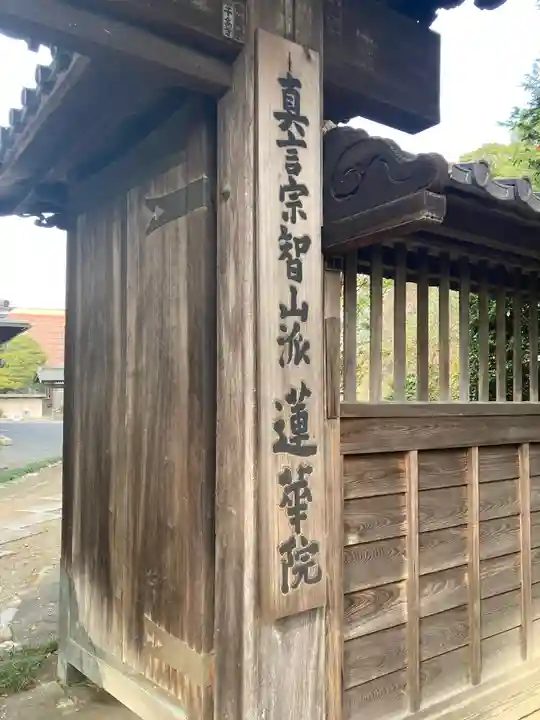 真言宗智山派 蓮華院